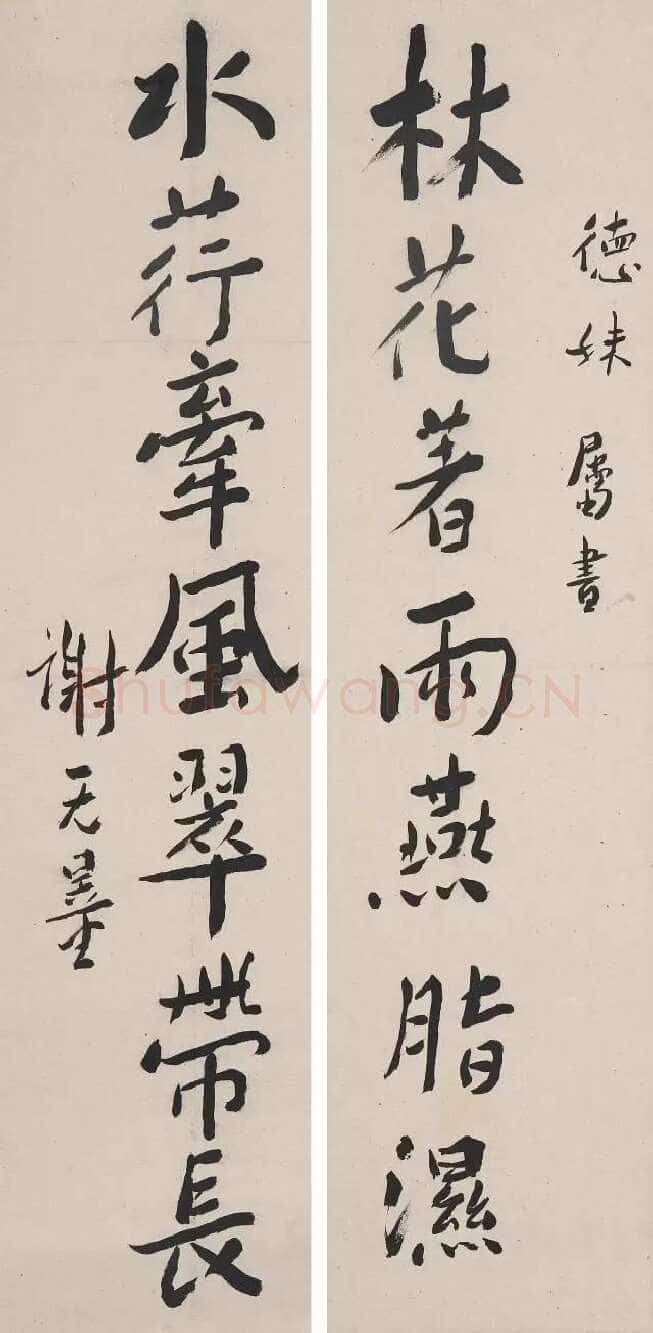 德妹屬書
林花著雨燕脂濕
水荇牽風翠帶長
謝无量
Shufawang.CN